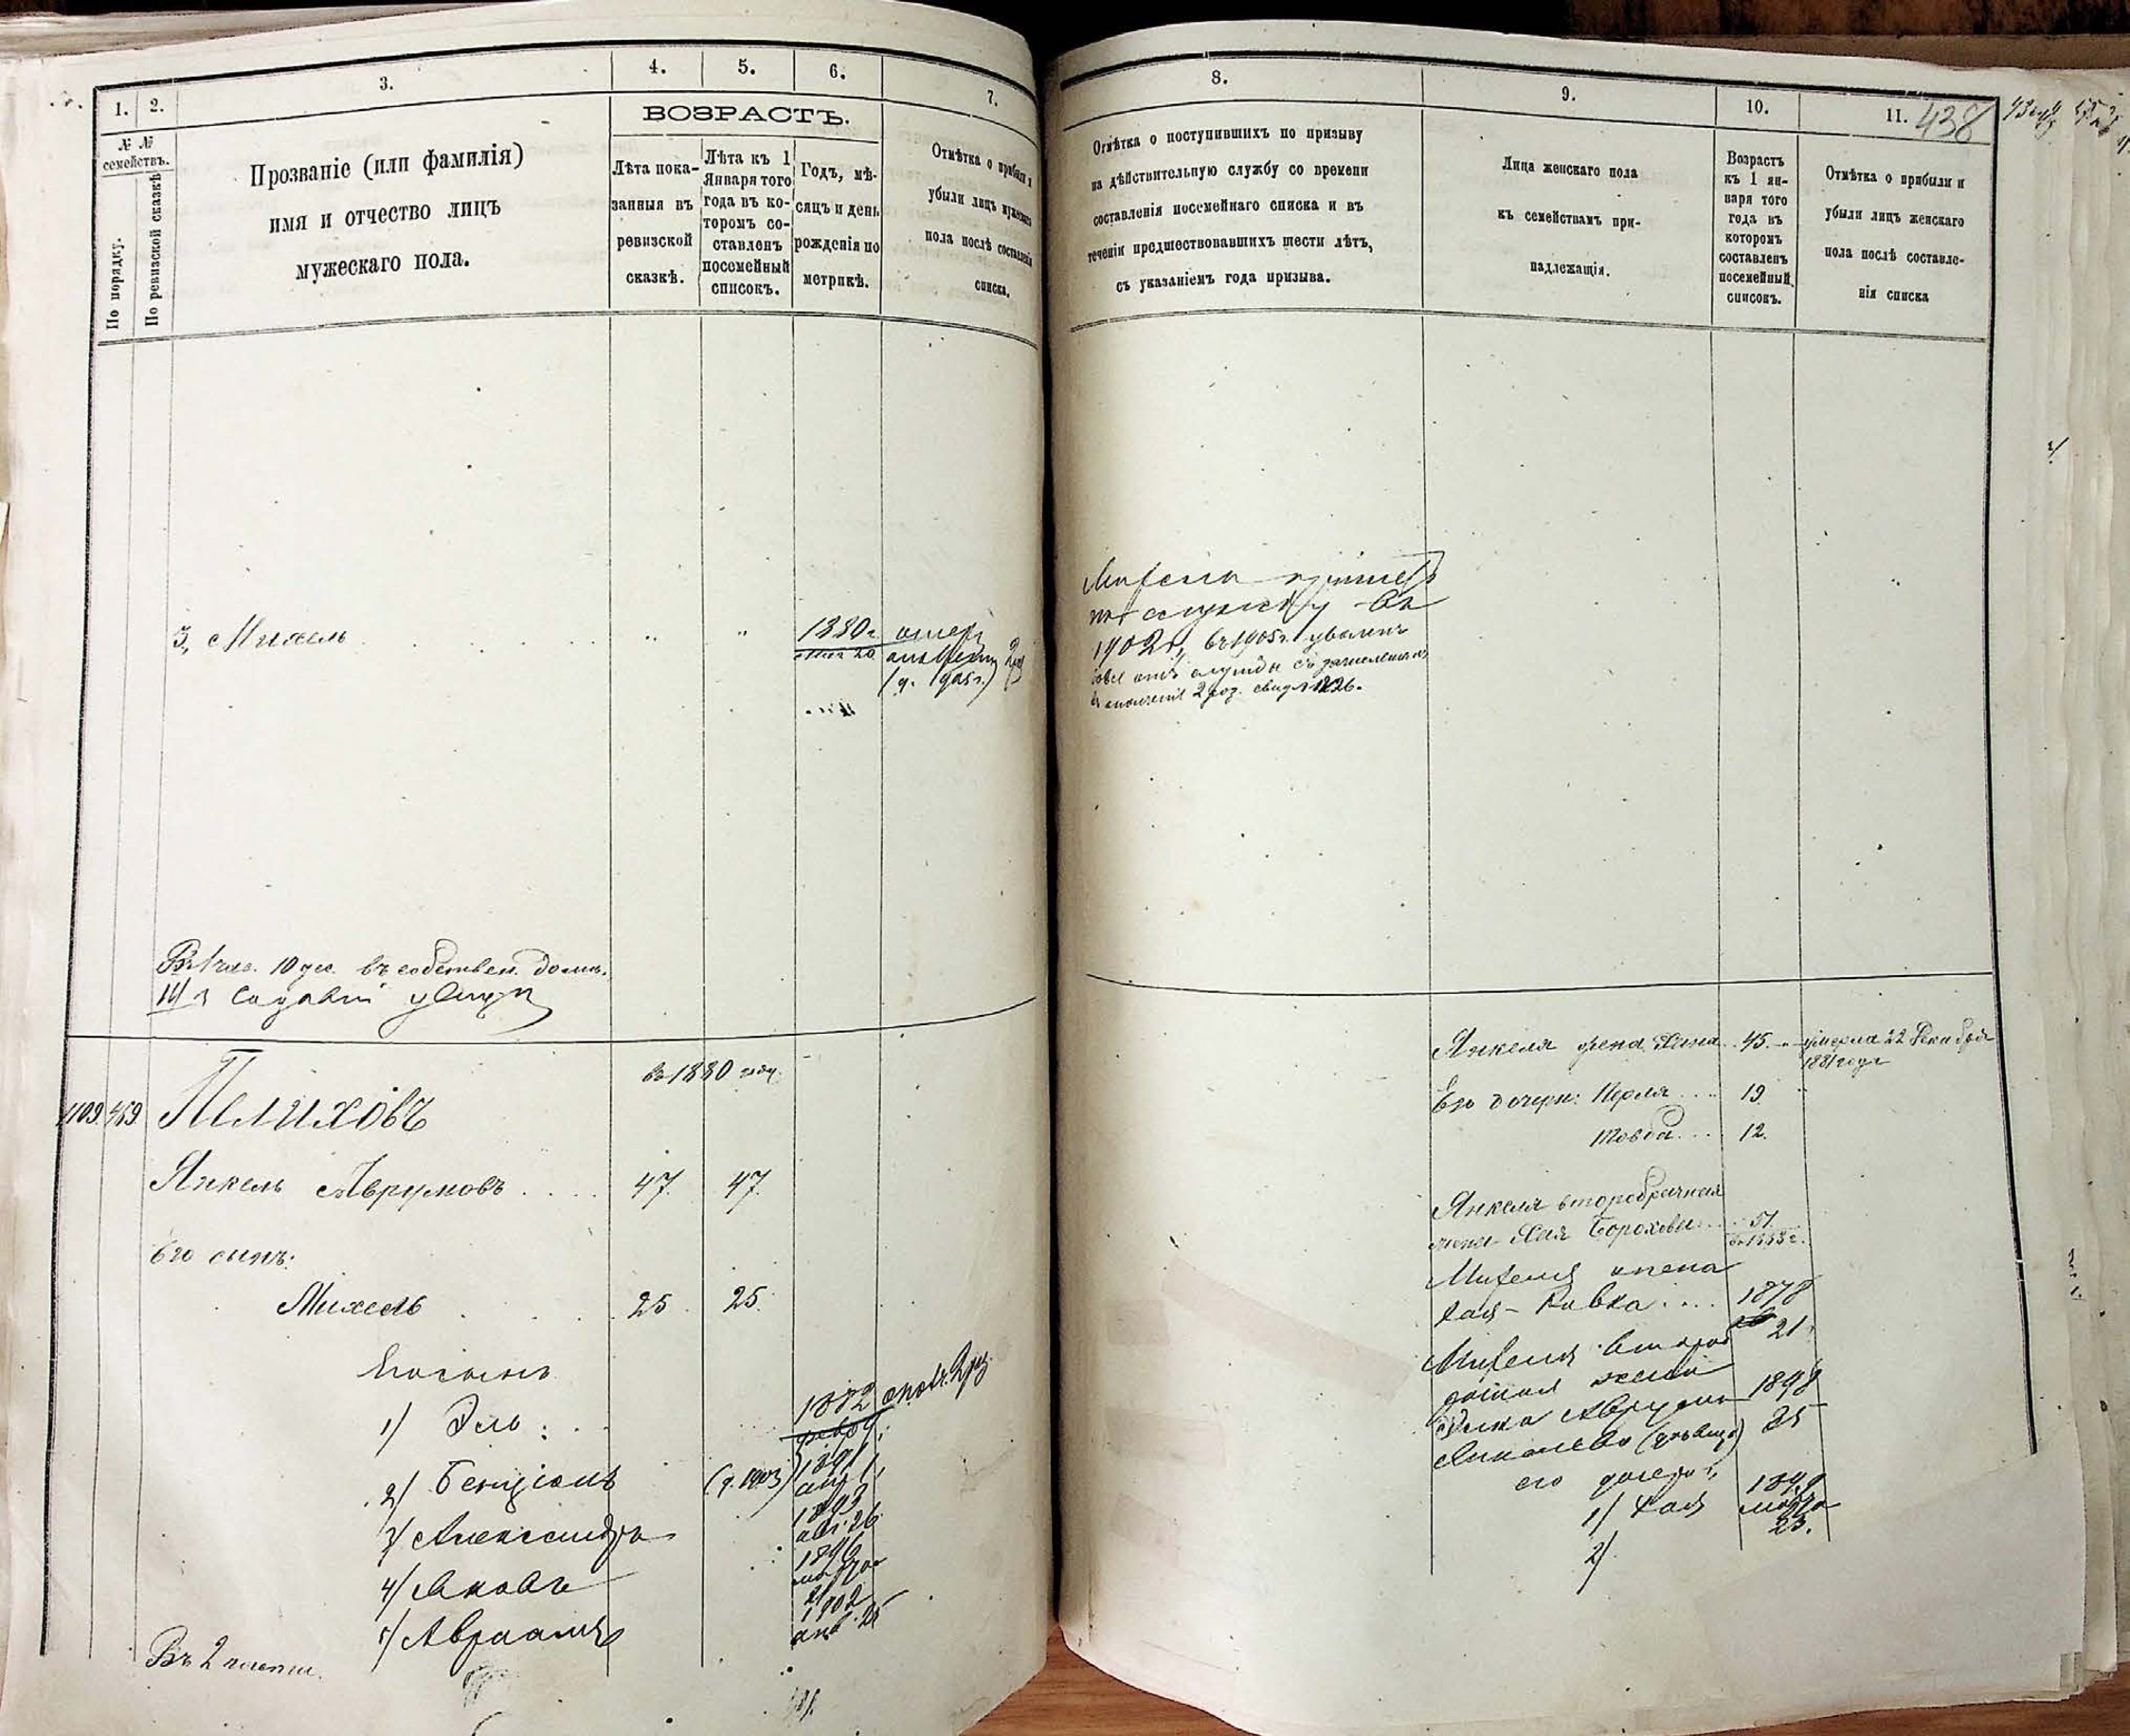 1.
2.
3.
4.
5.
6.
7.
№ №
семействъ.
По порядку.
По ревизской сказкѣ
Прозваніе (или фамилія)
имя и отчество лицъ
мужескаго пола.
ВОЗРАСТЪ.
Лѣта пока-
занныя въ
ревизской
сказкѣ.
Лѣта къ 1
Января того
года въ ко-
торомъ со-
ставленъ
посемейный
списокъ.
Годъ, мѣ-
сяцъ и день
рожденія по
метрикѣ.
Отмѣтка о прибыли и
убыли лицъ мужескаго
пола послѣ составленія
списка.
3, Михель
1880г.
Въ 1 час. 10 уез. въ собствен. домѣ.
въ 1880 году.
1109 459 Пелиховъ
Янкель Аврумовъ 47 47
Его сынъ:
Михель 25 25
Его сынъ
1/ Эль 1882
2/ Бенціонъ (д. 1903) 1891
3/ Александръ 1893
авг. 26
4/ Яковъ 1896
5/ Авраамъ 1902
янв. 25
Въ 2 части.
8.
9.
10.
11.
438
Отмѣтка о поступившихъ по призыву
на дѣйствительную службу со времени
составленія посемейнаго списка и въ
теченіи предшествовавшихъ шести лѣтъ,
съ указаніемъ года призыва.
Лица женскаго пола
къ семействамъ при-
надлежащія.
Возрастъ
къ 1 ян-
варя того
года въ
которомъ
составленъ
посемейный
списокъ.
Отмѣтка о прибыли и
убыли лицъ женскаго
пола послѣ составле-
нія списка
Михель принятъ
на службу въ
1902г, въ 1905г. уволенъ
Янкеля жена Хана 45. умерла 22 Декабря
1881 года
Его дочери: Перля 19
Товба 12.
Янкеля второбрачная
жена Хая Борохова 51
въ 1888 г.
Михеля жена
Хая-Ривка 1878
21
Михеля второ
1898
25
его дочери:
1/ Хая 1899
марта
23.
2/